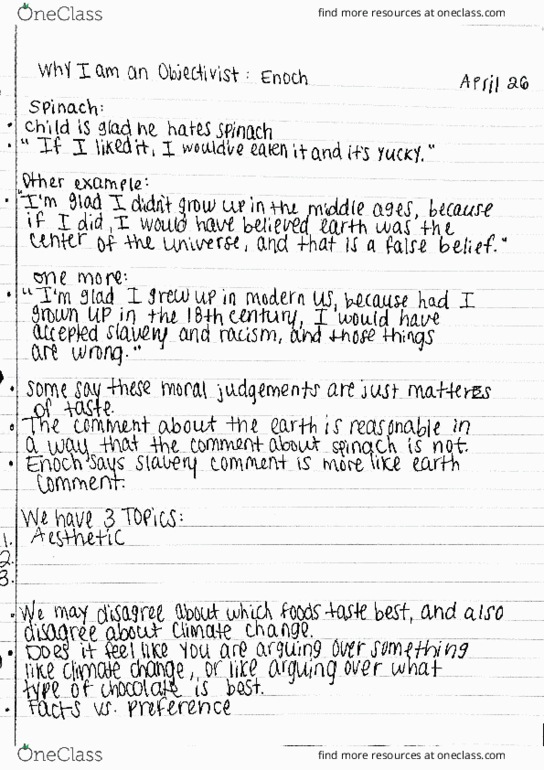 OneClass
find more resources at oneclass.com
Why I am an Objectivist: Enoch
April 26
Spinach:
• child is glad he hates spinach
• "If I liked it, I would've eaten it and it's yucky."
Other example:
• "I'm glad I didn't grow up in the middle ages, because
if I did, I would have believed earth was the
center of the universe, and that is a false belief."
one more:
• "I'm glad I grew up in modern US, because had I
grown up in the 18th century, I would have
accepted slavery and racism, and those things
are wrong."
• some say these moral judgements are just matteres
of taste.
• The comment about the earth is reasonable in
a way that the comment about spinach is not.
• Enoch says slavery comment is more like earth
comment.
We have 3 TOPICS:
1. Aesthetic
2.
3.
• We may disagree about which foods taste best, and also
disagree about climate change.
• Does it feel like you are arguing over something
like climate change, or like arguing over what
type of chocolate is best.
• Facts vs. preference
OneClass
find more resources at oneclass.com